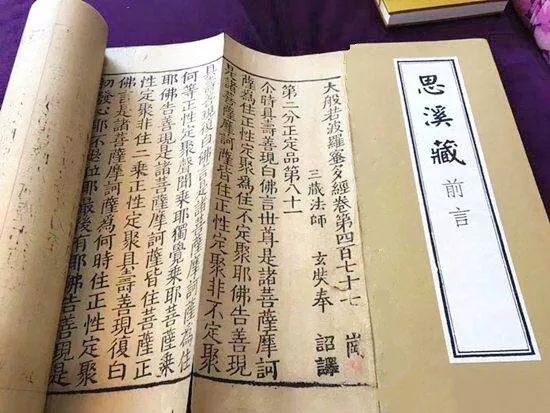 思溪藏
前言
大般若波羅蜜多經卷第四百七十七 歲
三藏法師 玄奘奉 詔譯
第二分正定品第八十一
尒時具壽善現白佛言世尊是諸菩薩摩訶
薩為住正性定聚為住不定聚耶佛告善現
是諸菩薩摩訶薩皆住正性定聚非不定聚
具壽善現復白佛言是諸菩薩摩訶薩為住
何等正性定聚聲聞乘耶獨覺乘耶菩薩乘
耶佛告善現是諸菩薩摩訶薩皆住菩薩正
性定聚非住二乘正性定聚具壽善現復白
佛言是諸菩薩摩訶薩為何時住正性定聚
初發心耶不退位耶最後有耶佛告善現是